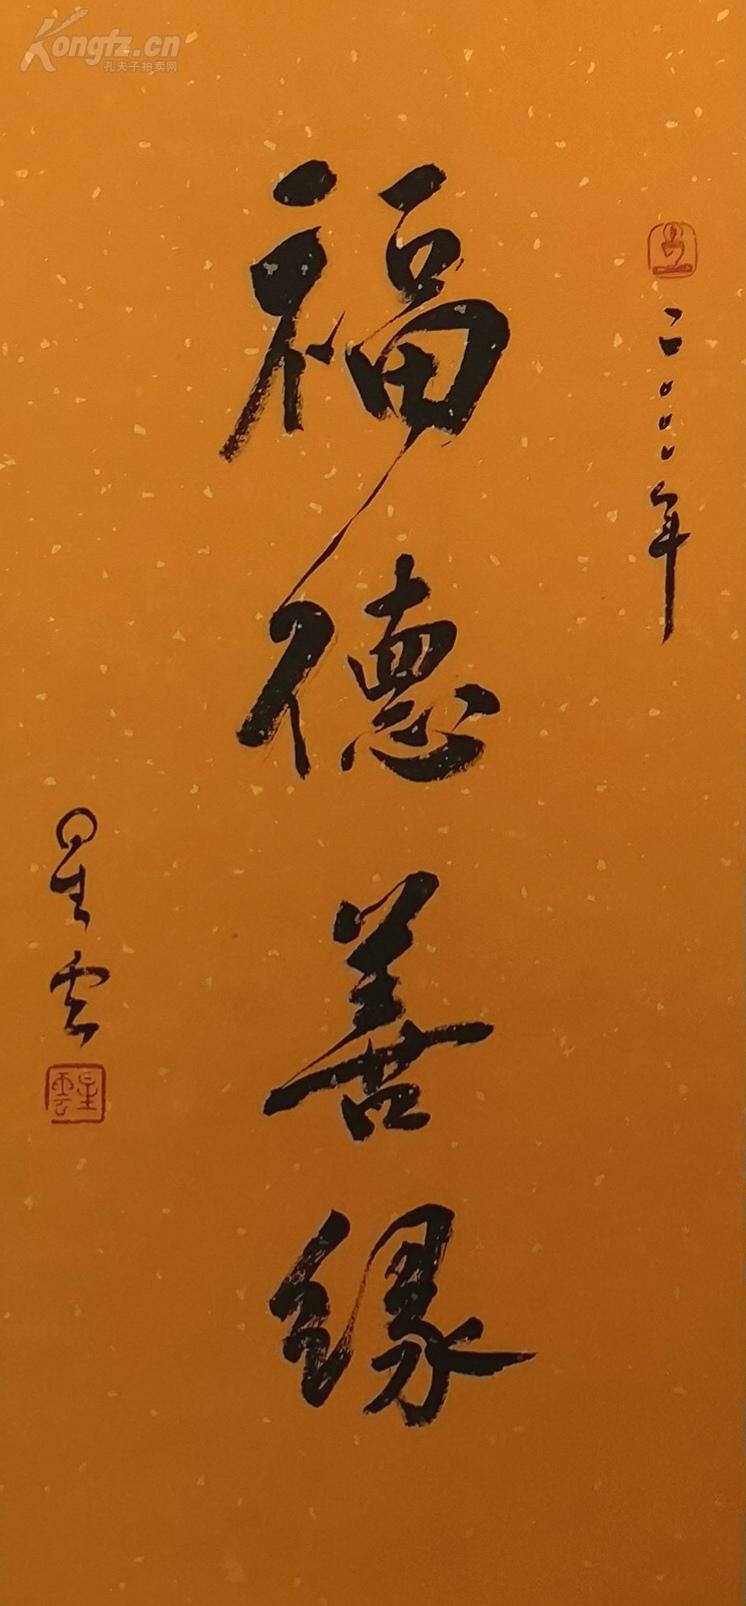 Kongfz.cn
孔夫子拍卖网
二〇〇〇年
福德善缘
星云
星雲